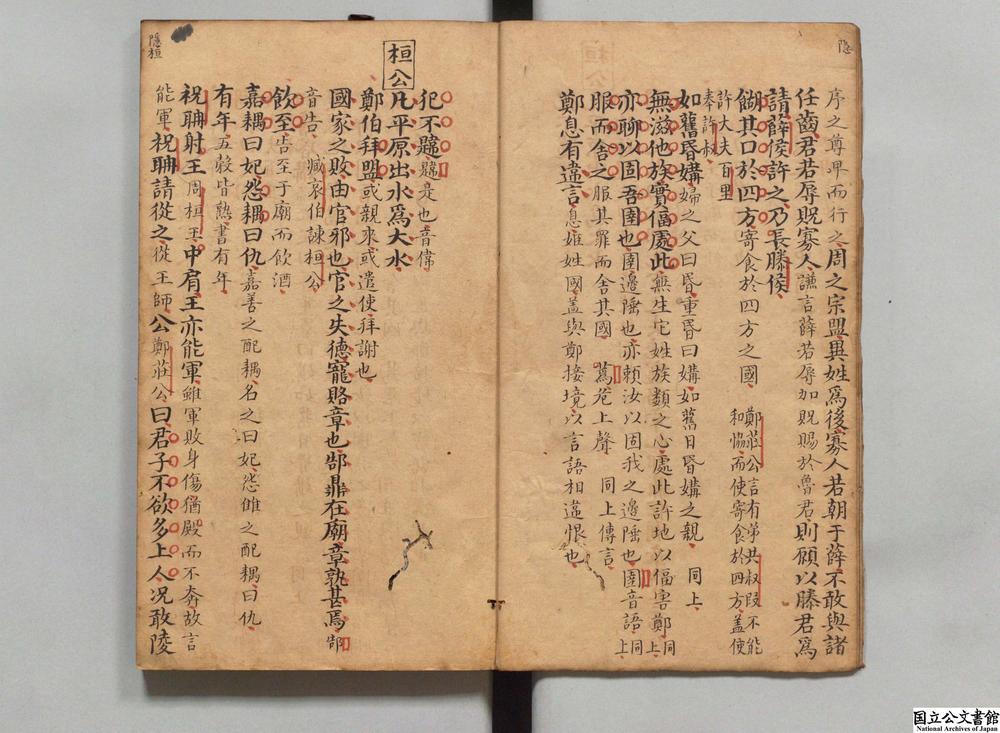 隠
序之尊卑而行之周之宗盟異姓爲後寡人若朝于薛不敢與諸
任齒君若辱貺寡人謙言薛若辱加貺賜於魯君則願以滕君爲
請薛侯許之乃長滕侯
餬其口於四方寄食於四方之國 鄭莊公言有弟共叔段不能和協而使寄食於四方盖使
許大夫百里奉許叔
如舊昏媾婦之父曰昏重昏曰媾如舊日昏媾之親 同上
無滋他族實偪處此無生它姓族類之心處此許地以偪害鄭 同上
亦聊以固吾圉也圉邊陲也亦賴汝以固我之邊陲也圉音語 同上
服而舍之服其罪而舍其國 蔿卷上聲 同上傳言
鄭息有違言息姬姓國盖與鄭接境以言語相違恨也
隠桓
犯不韙韙是也音偉
桓公
凡平原出水爲大水
鄭伯拜盟或親來或遣使拜謝也
國家之敗由官邪也官之失德寵賂章也郜鼎在廟章孰甚焉郜
音告 臧哀伯諫桓公
飲至告至于廟而飲酒
嘉耦曰妃怨耦曰仇嘉善之配耦名之曰妃怨雠之配耦曰仇
有年五穀皆熟書有年
祝聃射王周桓王中肩王亦能軍雖軍敗身傷猶殿而不奔故言
能軍祝聃請從之從王師公鄭莊公曰君子不欲多上人况敢陵
国立公文書館
National Archives of Japan